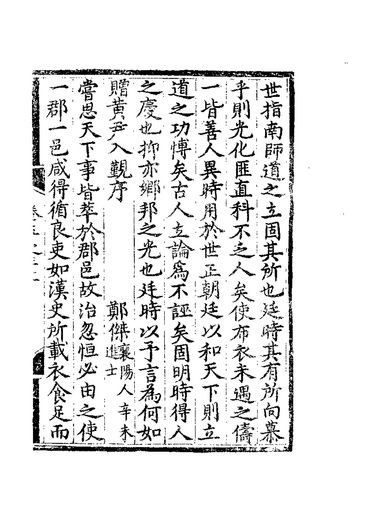 世指南師道之立固其所也廷時其有所向慕
乎則光化匪直科不乏人矣使布衣未遇之儔
一皆善人異時用於世正朝廷以和天下則立
道之功博矣古人立論爲不誣矣固明時得人
之慶也抑亦鄉邦之光也廷時以予言為何如
贈黃尹入覲序
鄭傑襄陽人辛未進士
嘗思天下事皆萃於郡邑故治忽恒必由之使
一郡一邑咸得循良吏如漢史所載衣食足而